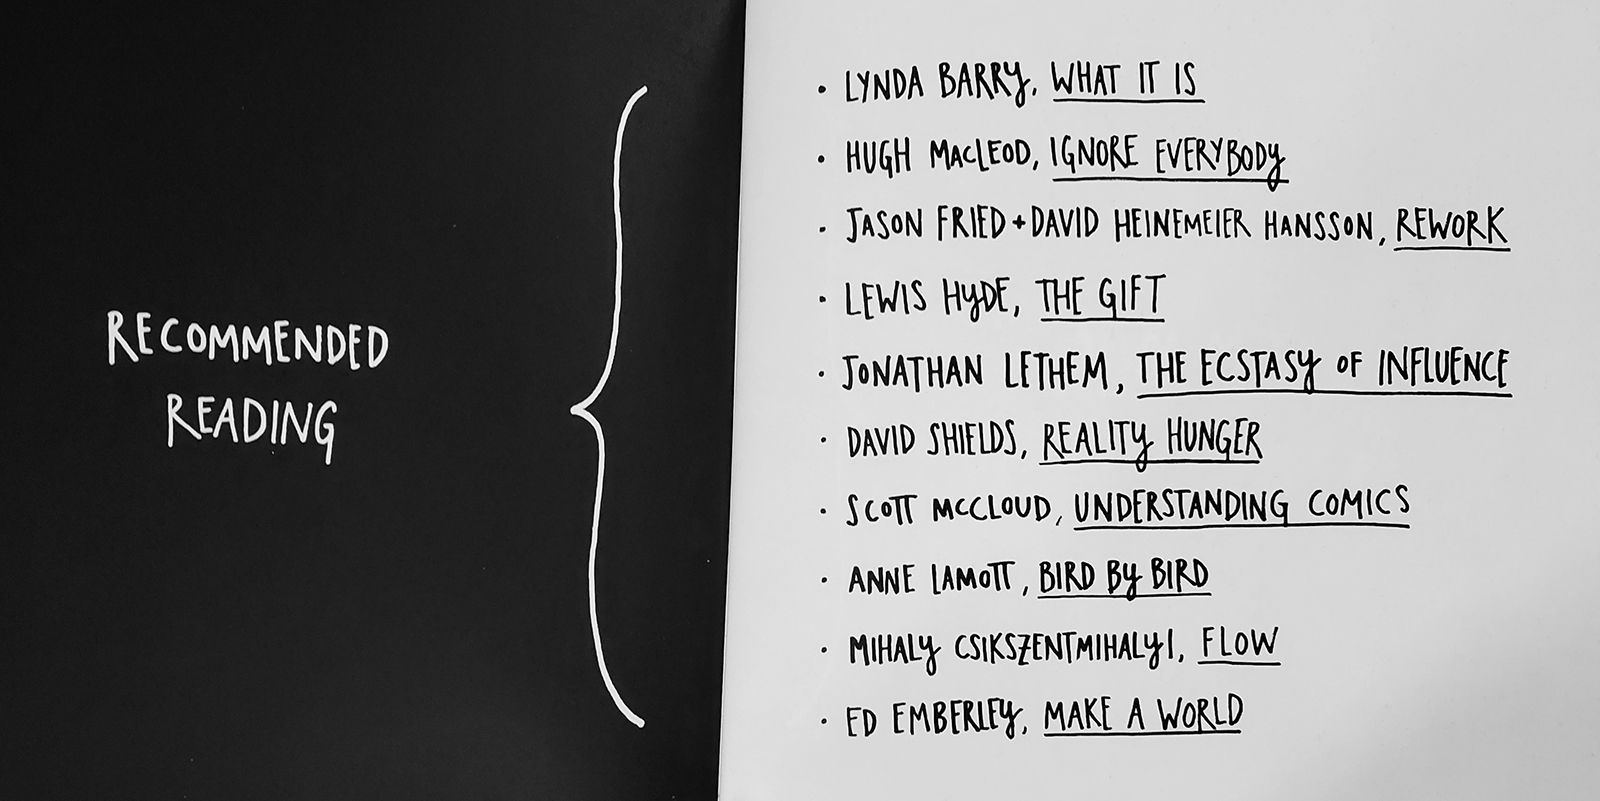 RECOMMENDED
READING
• LYNDA BARRY, WHAT IT IS
• HUGH MACLEOD, IGNORE EVERYBODY
• JASON FRIED + DAVID HEINEMEIER HANSSON, REWORK
• LEWIS HYDE, THE GIFT
• JONATHAN LETHEM, THE ECSTASY OF INFLUENCE
• DAVID SHIELDS, REALITY HUNGER
• SCOTT MCCLOUD, UNDERSTANDING COMICS
• ANNE LAMOTT, BIRD BY BIRD
• MIHALY CSIKSZENTMIHALYI, FLOW
• ED EMBERLEY, MAKE A WORLD